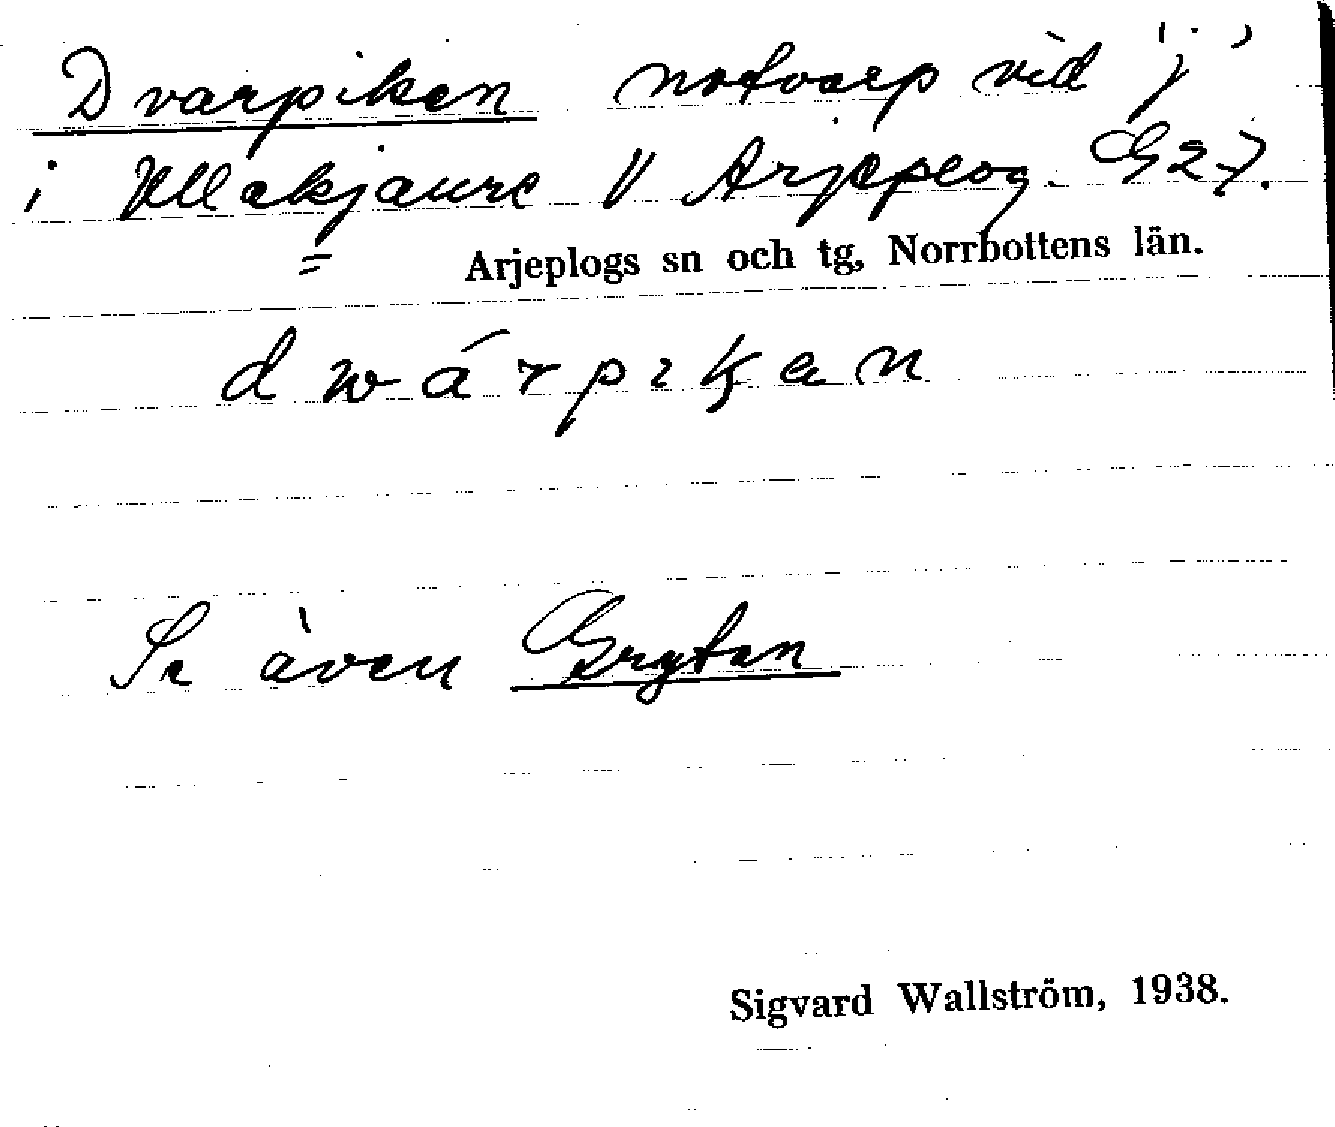 Dvarpiken notvarp vid 'j'
i Ullekjaure V Arjeplog. G27.
Arjeplogs sn och tg, Norrbottens län.
d w á r p ı k a n
Se även Grytan
Sigvard Wallström, 1938.